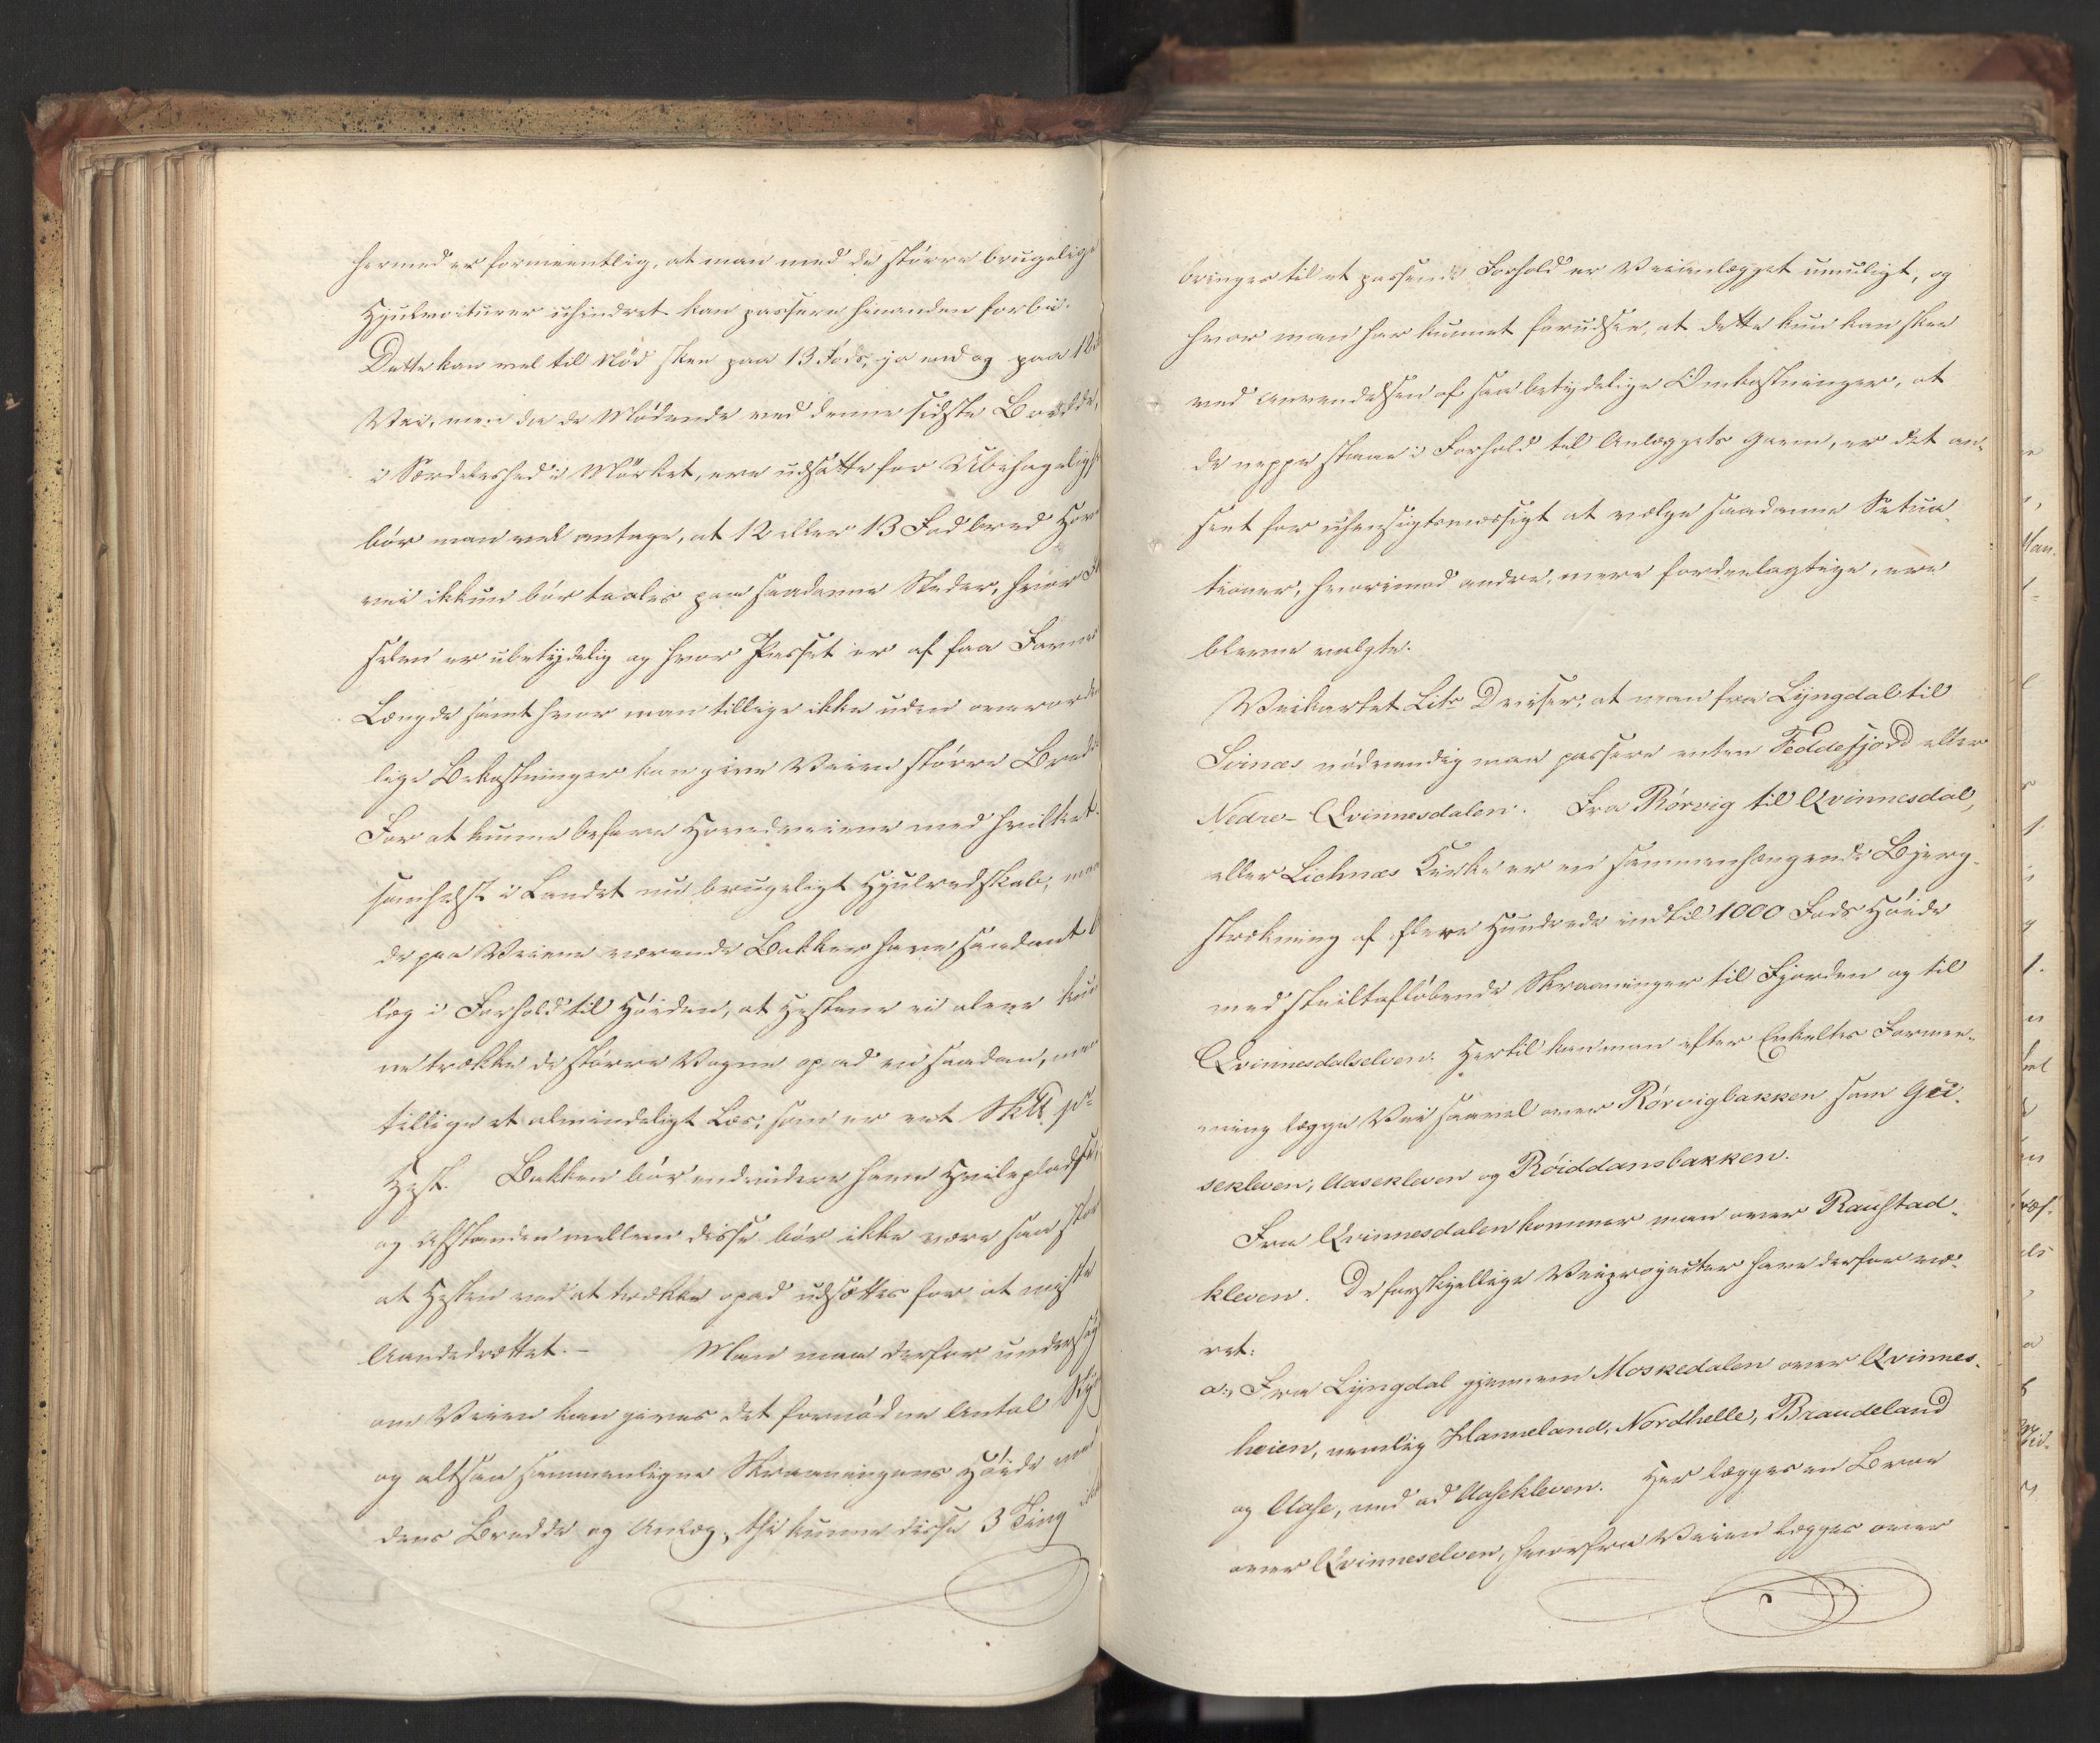 hermed er formeentlig, at man med de större brugelige
Hjulvoiturer uhindret kan passere hinanden forbi.
Dette kan vel til Nöd skee paa 13 Fods, ja end og paa 12
Vei, men da de Mödende ved denne sidste Bredde,
i Særdeleshed i Mörket, ere udsatte for Ubehagelighe
bör man vel antage, at 12 eller 13 Fod bred Hov
vei ikkun bör taales paa saadanne Steder, hvor
selen er ubetydelig og hvor Passet er af faa Favnes
Længde samt hvor man tillige ikke uden overorden
lige Bekostninger kan give Veien större Bredde
For at kunne befare Hovedveiene med hvilket-
somhelst i Landet nu brugeligt Hjulredskab, maa
de paa Veiene værende Bakker have saadant
læg i Forhold til Höiden, at Hestene ei alene kun
ne trække de större Vogne opad en saadan, men
tillige et almindeligt Læs, som er eet Sk℔ pr
Hest. Bakken bör endvidere have Hvilepladse,
og Afstanden mellem disse bör ikke være saa stor
at Hesten ved at trække opad udsættes for at miste
Aandedrættet. – Man maa derfor undersøg
om Veien kan gives det fornödne Antal
og altsaa sammenligne Skraaningens Höide med
dens Bredde og Anlæg, thi kunne disse 3 Ting ikke
bringes til et passende Forhold er Veianlægget umuligt, og
hvor man har kunnet forudsee, at dette kun kan skee
ved Anvendelsen af saa betydelige Omkostninger, at
de neppe staae i Forhold til Anlæggets Gavn, er det an-
seet for uhensigtsmæssigt at vælge saadanne Situa-
tioner, hvorimod andre, mere fordeelagtige, ere
blevne valgte.
Veikartet Litr D viser, at man fra Lyngdal til
Svinæs nödvendig maa passere enten Feddefjord eller
Nedre-Qvinnesdalen. Fra Rörvig til Qvinnesdal,
eller Liehnæs Kirke er en sammenhængende Bjerg-
strækning af flere Hundrede indtil 1000 Fods Höide
med steiltaflöbende Skraaninger til Fjorden og til
Qvinnesdalselven. Hertil kan man efter Enkeltes Formee-
ning lægge Vei saavel over Rörvigbakken som Gui-
sekleven, Aasekleven og Röiddansbakken.
Fra Qvinnesdalen kommer man over Raustad-
kleven. De forskjellige Veiprojecter have derfor væ-
ret:
a., Fra Lyngdal gjennem Moskedalen over Qvinnes-
heien, nemlig Hanneland, Nordhelle, Braudeland
og Aase, ned ad Aasekleven. Her lægges en Broe
over Qvinneselven, hvorfra Veien lægges over